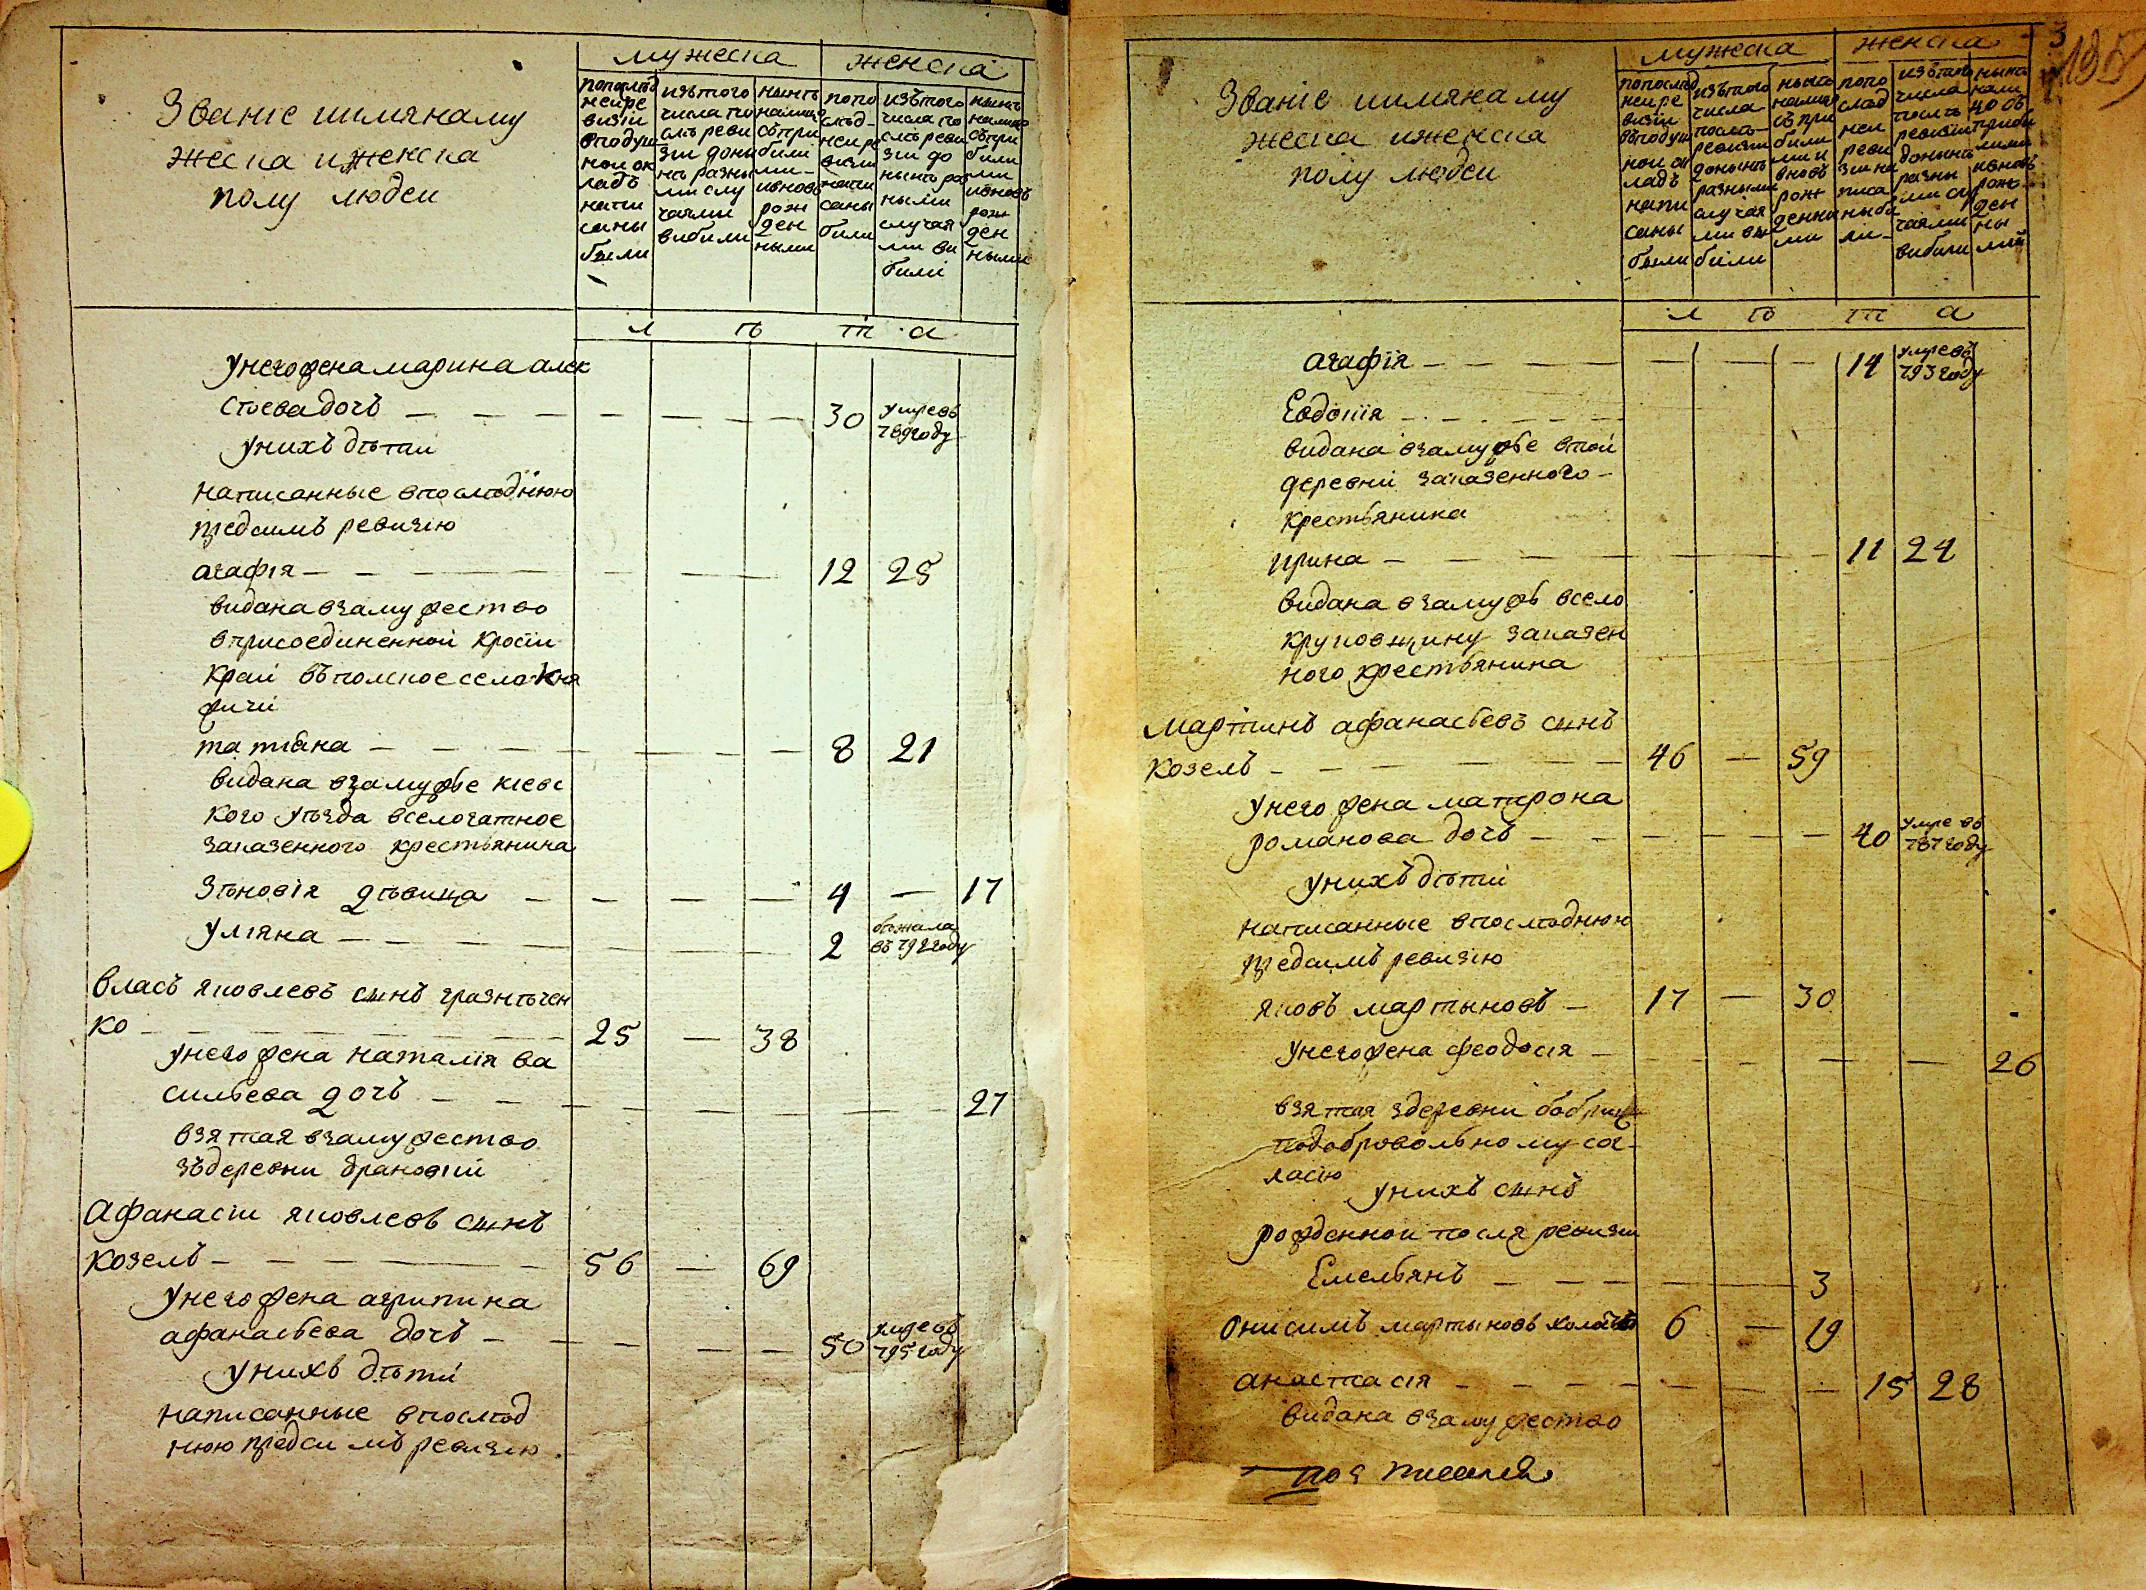 Званіе иимяна му
жеска иженска
полу людеи
мужеска
женска
попослѣд
неире
визіи
вподуш
нои ок
ладъ
напи
саны
были
изътого
числа по
слѣ реви
зіи доны
нѣ разны
ми слу
чаями
вибили
нынѣ
налицо
съпри
били
ми
ивновь
рож
ден
ными
попо
слѣд-
неире
визіи
напи
саны
били
изътого
числа по
слѣ реви
зіи до
нынѣ раз
ными
случая
ми ви
били
нынѣ
налицо
съпри
били
ми
ивновь
рож
ден
ными
л ѣ т а
унегоженамарина алек
сѣевадочь 30 умревъ
789году
унихъ дѣтеи
написанные впослѣднюю
предсимъ ревизію
агафія 12 25
видана взамужество
вприсоединенной кросіи
край въполское село Кня
жичи
татіана 8 21
видана взамужье кіевс
кого уѣзда вселогатное
заказенного крестьянина
Зѣновія дѣвица 4 17
уліяна 2 бѣжала
въ 792году
власъ яковлевъ сынъ гразнѣчен
ко 25 38
унего жена наталія ва
сильева дочь 27
взятая взамужество
зъдеревни
Афанасіи яковлевъ сынъ
козелъ 56 69
унего жена агрипина
афанасьева дочь 50 умревъ
795году
унихъ дѣти
написанные впослѣд
нюю предсимъ ревизію
3
Званіе иимяна му
жеска иженска
полу людеи
мужеска
женска
попослѣд
неире
визіи
въподуш
нои ок
ладъ
напи
саны
были
изътого
числа
послѣ
ревизіи
донынѣ
разными
случая
ми вы
били
нынѣ
налицо
съпри
били
ми и
вновь
рож
денны
ми
попо
слѣд
неи
реви
зіи на
писа
ны бы
ли
изътого
числа
послѣ
ревизіи
донынѣ
разны
ми слу
чаями
вибили
нынѣ
нали
цо съ
приби
лими
ивновь
рож
ден
ны
ми
л ѣ т а
агафія 14 умревъ
793году
Евдокія
видана взамужье втой
деревни заказенного
крестьянина
ирина 11 24
видана взамужъ всело
круповщину заказен
ного крестьянина
мартинъ афанасьевъ сынъ
козелъ 46 59
унего жена матрона
романова дочь 40 умре въ
787году
унихъ дѣти
написанные впослѣднюю
предсимъ ревизію
яковъ мартыновъ 17 30
унегожена феодосія 26
взятая здеревни
подобровольному сог
ласію
унихъ сынъ
рожденнои посля ревизіи
Емельянъ 3
Онисимъ мартыновъ холостъ 6 19
анастасія 15 28
видана взамужество